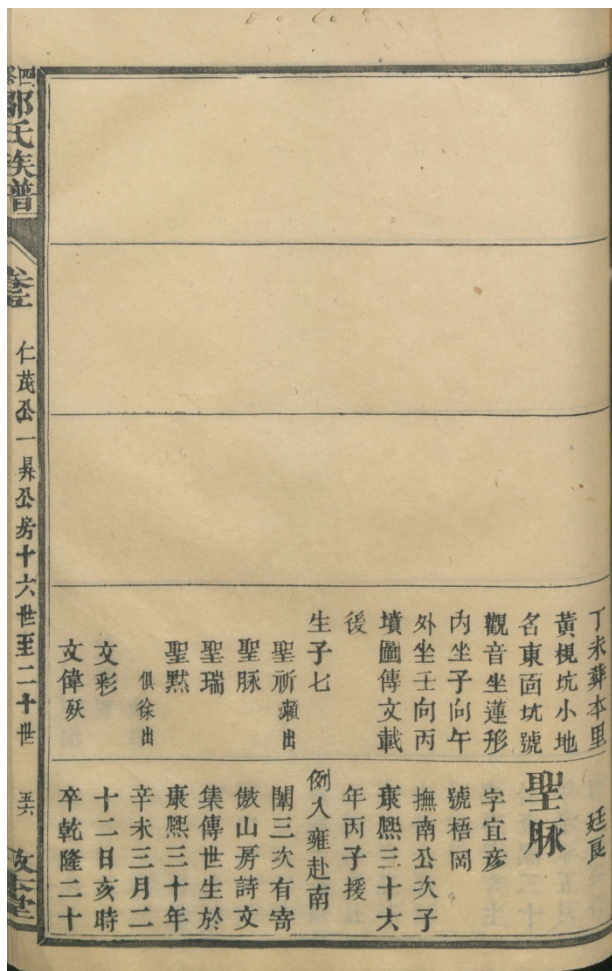 丁未葬本里
黃梘坑小地
名東面坑號
觀音坐蓮形
內坐子向午
外坐壬向丙
墳圖傳文載
後
生子七
聖祈瀨出
聖脉
聖瑞
聖默
俱徐出
文彩
文偉殀
廷良
聖脉
字宜彥
號梧岡
撫南公次子
康熙三十六
年丙子援
例入雍赴南
闈三次有寄
傲山房詩文
集傳世生於
康熙三十年
辛未三月二
十二日亥時
卒乾隆二十
四修
鄒氏族譜
卷
仁茂公一昇公房十六世至二十世
五六
敦本堂